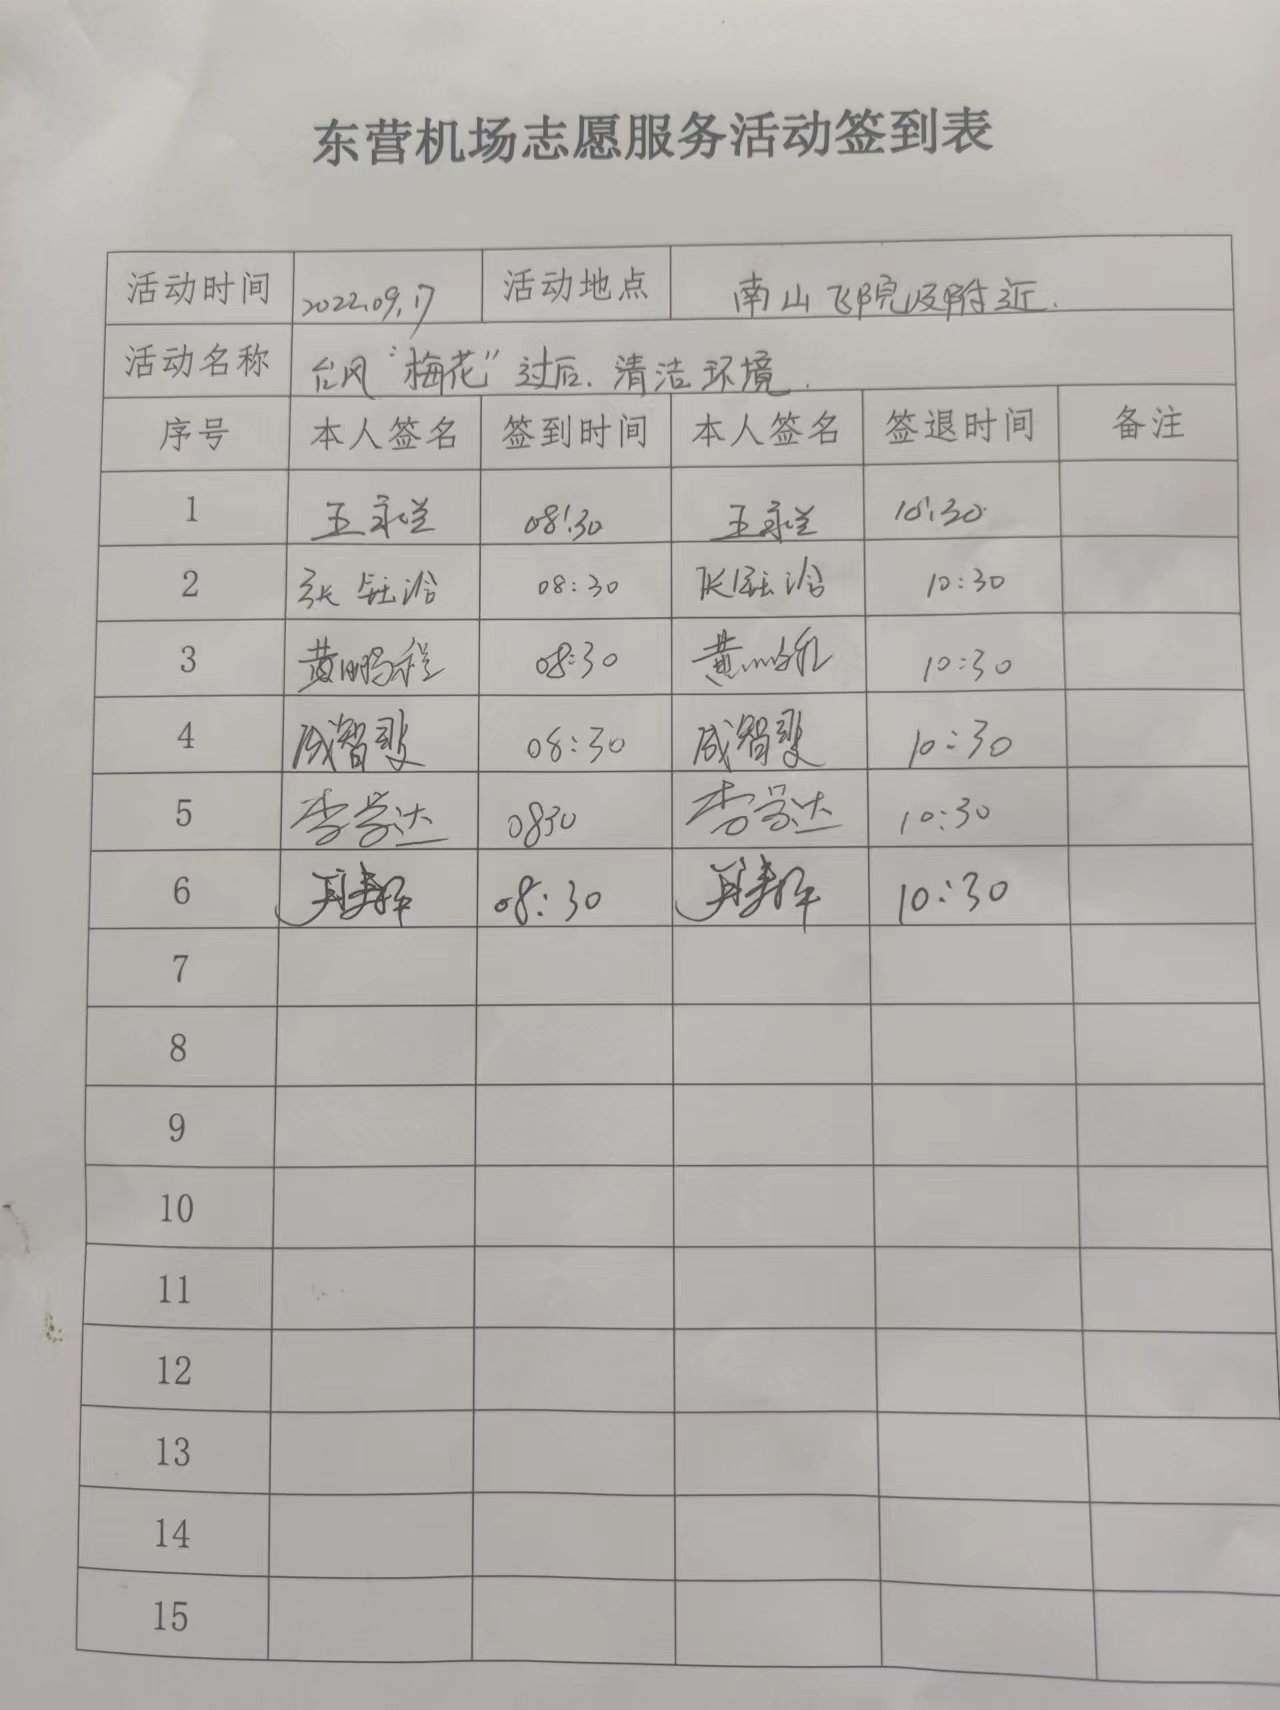 东营机场志愿服务活动签到表
活动时间 2022.09.17 活动地点 南山飞院及附近.
活动名称 台风“梅花”过后.清洁环境.
序号 本人签名 签到时间 本人签名 签退时间 备注
1 王永兰 08:30 王永兰 10:30
2 张钰涵 08:30 张钰涵 10:30
3 黄鹏程 08:30 黄 10:30
4 成智斐 08:30 成智斐 10:30
5 李学达 0830 李学达 10:30
6 08:30 10:30
7
8
9
10
11
12
13
14
15